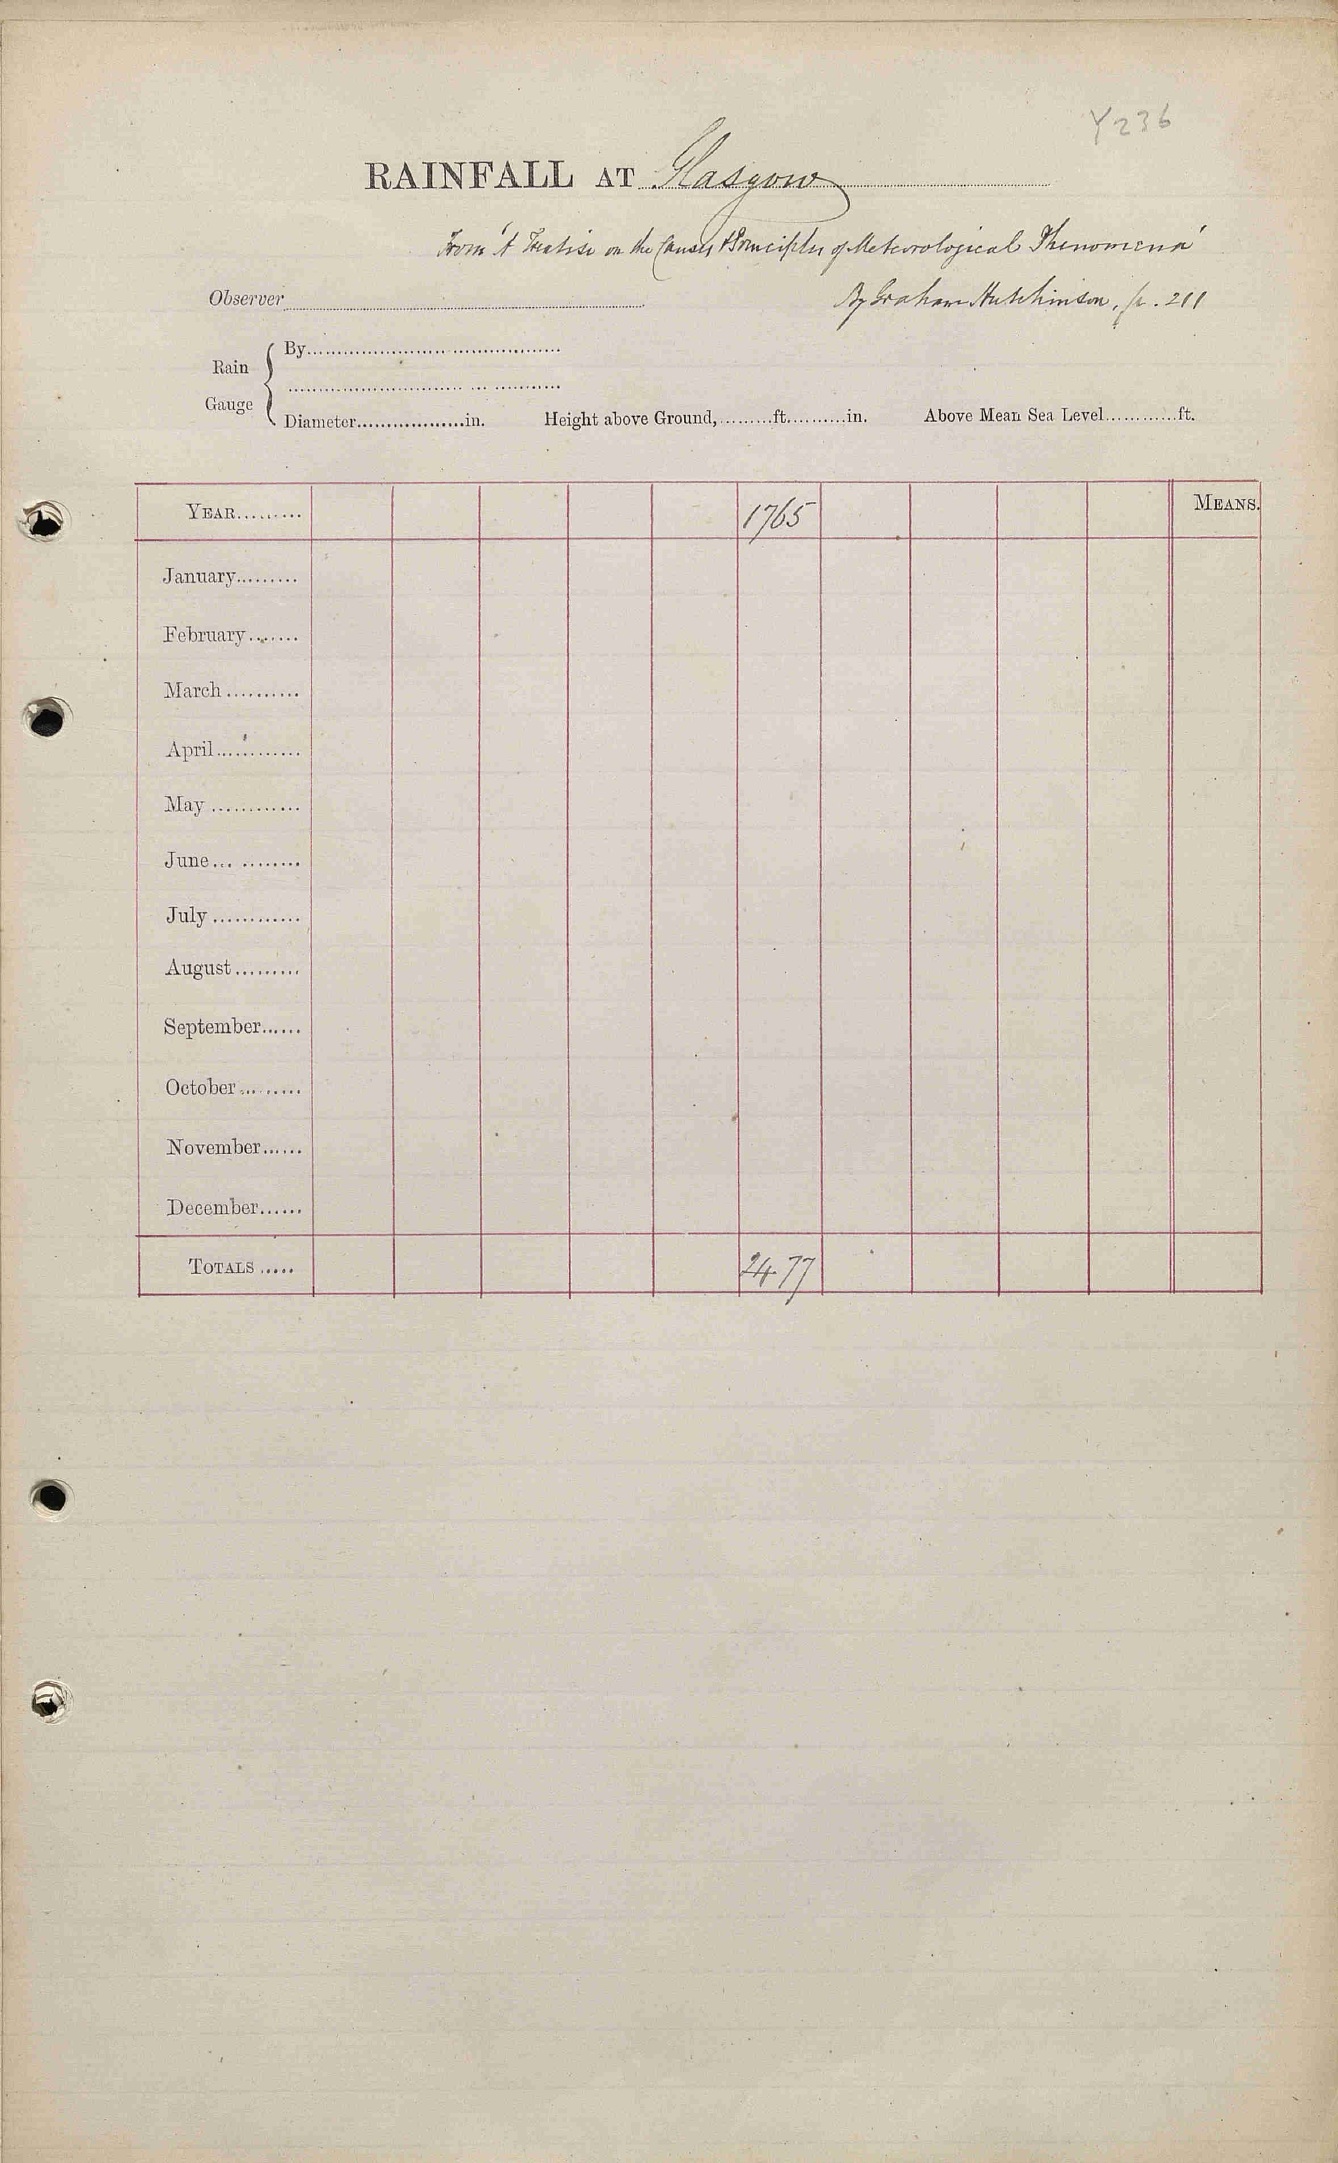 Y236
RAINFALL AT Glasgow
From 'A Treatise on the Causes & Principles of Meteorological Phenomena'
Observer
By Graham Hutchinson, p. 211
Rain Gauge
By
Diameter in. Height above Ground, ft. in. Above Mean Sea Level ft.
YEAR 1765 MEANS.
January
February
March
April
May
June
July
August
September
October
November
December
TOTALS 24.77